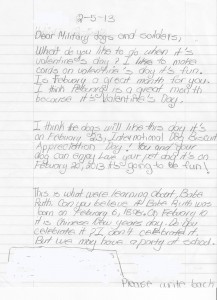 2-5-13
Dear Military dogs and soldiers,
What do you like to do when it's
valentine's day? I like to make
cards on valentine's day it's fun.
Is Febuary a great month for you.
I think Febuary is a great month
because it's Valentine's Day.
I think the dogs will like this day it's
on Febuary 23, International Dog Biscuit
Appreciation Day! You and your
dog can enjoy Love your pet day it's on
Febuary 20, 2013 it's going to be fun!
This is what were learning about, Babe
Ruth. Can you believe it! Babe Ruth was
born on Febuary 6, 1895. On Febuary 10
it is Chinese New years day. Do you
celebrate it? I don't celebrate it.
But we may have a party at school.
Please write back